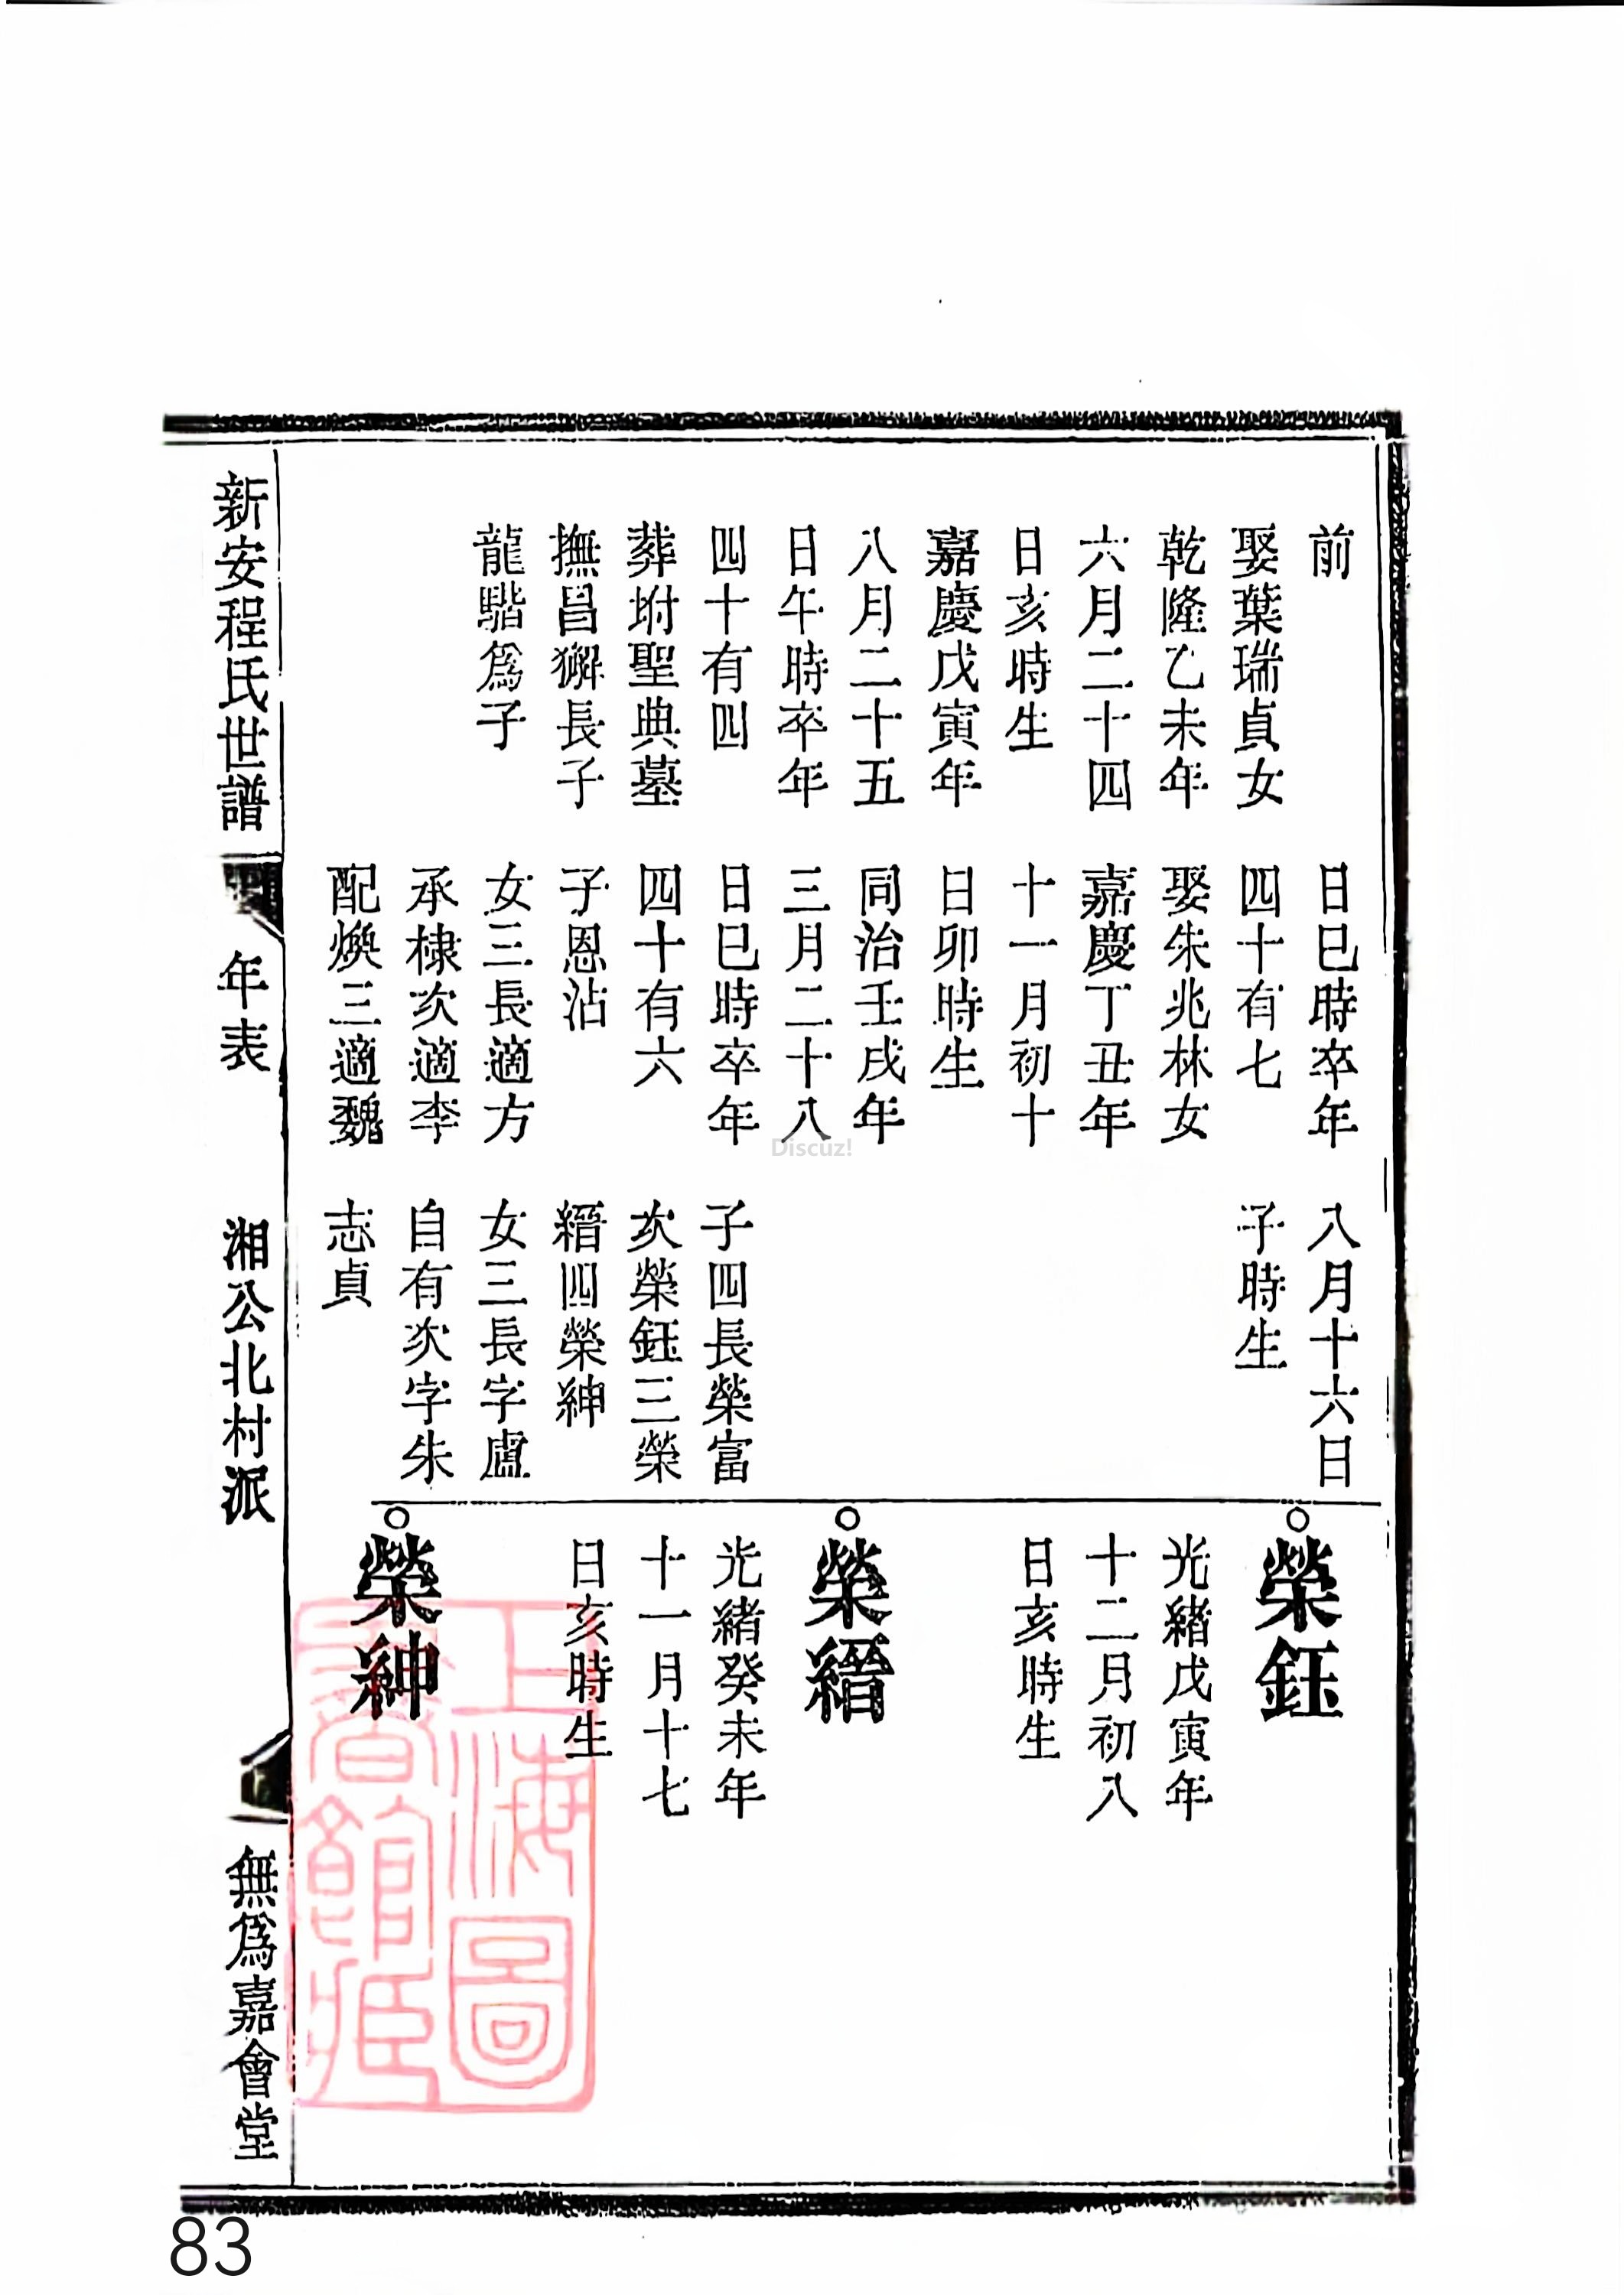 前
娶葉瑞貞女
乾隆乙未年
六月二十四
日亥時生
嘉慶戊寅年
八月二十五
日午時卒年
四十有四
葬坿聖典墓
撫昌獬長子
龍騘爲子
日巳時卒年
四十有七
娶朱兆林女
嘉慶丁丑年
十一月初十
日卯時生
同治壬戌年
三月二十八
日巳時卒年
四十有六
子恩沾
女三長適方
承棣次適李
配煥三適魏
八月十六日
子時生
子四長榮富
次榮鈺三榮
縉四榮紳
女三長字盧
自有次字朱
志貞
榮鈺
光緒戊寅年
十二月初八
日亥時生
榮縉
光緒癸未年
十一月十七
日亥時生
榮紳
新安程氏世譜
年表
湘公北村派
無爲嘉會堂
上海圖
書館藏
Discuz!
83